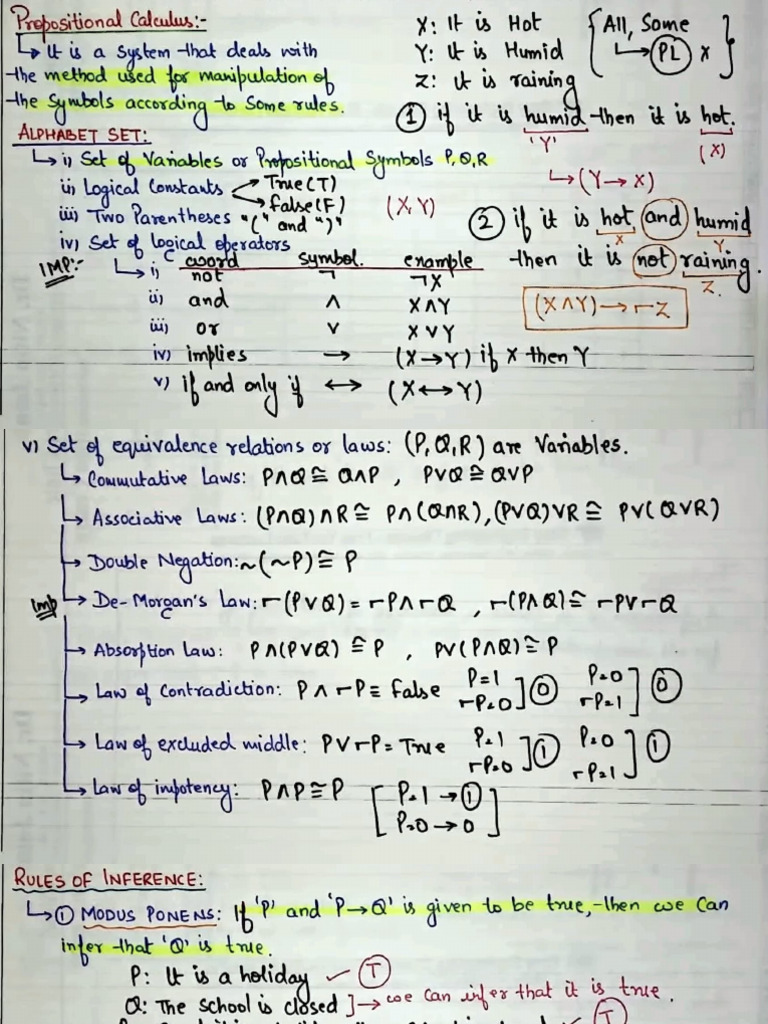 Propositional Calculus:-
↳ It is a system that deals with
the method used for manipulation of
the symbols according to some rules.
X: It is Hot
Y: It is Humid
Z: it is raining
{ All, Some
↳ PL X }
① if it is humid then it is hot.
'Y' (X)
↳ (Y → X)
ALPHABET SET:
↳ i) Set of Variables or Propositional Symbols P, Q, R
ii) Logical Constants True(T)
False(F)
iii) Two Parentheses "(" and ")" (X, Y)
iv) Set of logical operators
② if it is hot and humid
X Y
then it is not raining.
Z.
(X ∧ Y) → ¬Z
IMP:-
word symbol. example
↳ i) not ¬ ¬X
ii) and ∧ X∧Y
iii) or ∨ X∨Y
iv) implies → (X→Y) if X then Y
v) if and only if ↔ (X↔Y)
v) Set of equivalence relations or laws: (P,Q,R) are Variables.
↳ Commutative Laws: P∧Q ≅ Q∧P , P∨Q ≅ Q∨P
↳ Associative Laws: (P∧Q)∧R ≅ P∧(Q∧R), (P∨Q)∨R ≅ P∨(Q∨R)
↳ Double Negation: ~(~P) ≅ P
Imp ↳ De-Morgan's Law: ¬(P∨Q) = ¬P∧¬Q , ¬(P∧Q) ≅ ¬P∨¬Q
↳ Absorption Law: P∧(P∨Q) ≅ P , P∨(P∧Q) ≅ P
↳ Law of Contradiction: P ∧ ¬P ≡ False P=1 ¬P=0 ] ⓪ P=0 ¬P=1 ] ⓪
↳ Law of excluded middle: P∨¬P = True P=1 ¬P=0 ] ① P=0 ¬P=1 ] ①
↳ Law of impotency: P∧P ≅ P [ P=1 → ①
P=0 → 0 ]
RULES OF INFERENCE:
↳ ① MODUS PONENS: If 'P' and 'P→Q' is given to be true, then we can
infer that 'Q' is true.
P: It is a holiday ✓ T
Q: The school is closed ] → we can infer that it is true.
T